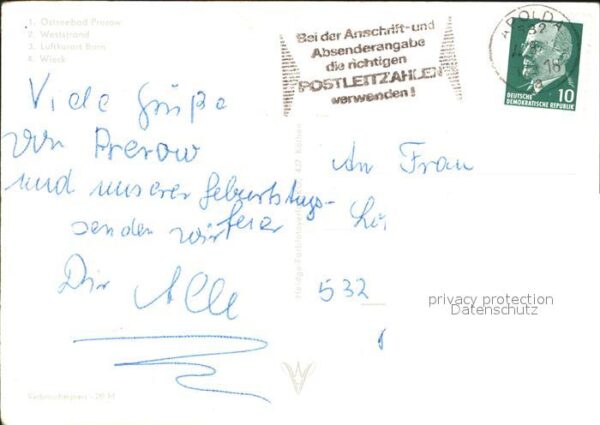 1. Ostseebad Prerow
2. Weststrand
3. Luftkurort Born
4. Wieck
Bei der Anschrift- und
Absenderangabe
die richtigen
POSTLEITZAHLEN
verwenden!
APOLDA
532
DEUTSCHE
DEMOKRATISCHE REPUBLIK
10
Viele Grüße
von Prerow
und unserer Geburtstags-
senden wir
Dir Alle
427 Köthen
An Frau
532
privacy protection
Datenschutz
Verbraucherpreis -,20 M